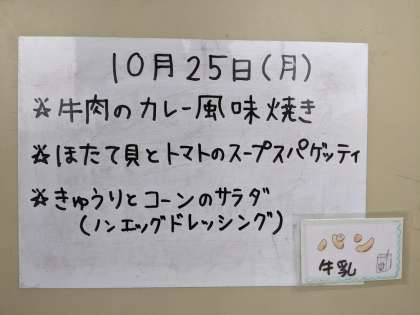 10月25日(月)
☆牛肉のカレー風味焼き
☆ほたて貝とトマトのスープスパゲッティ
☆きゅうりとコーンのサラダ
(ノンエッグドレッシング)
パン
牛乳